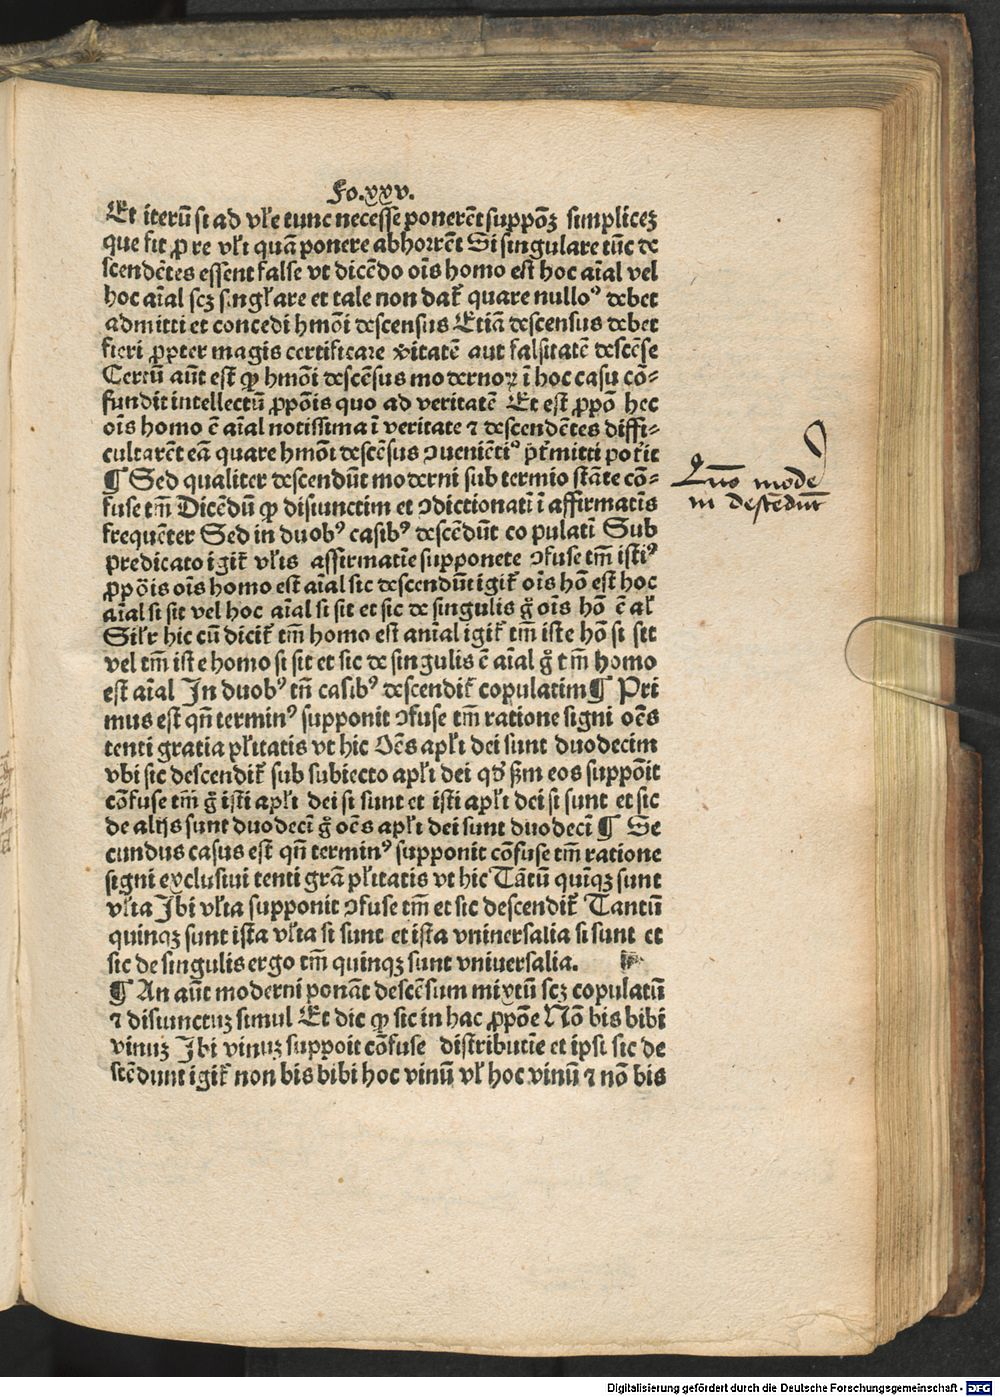 Fo.xxv.
Et iterū si ad vl̄e tunc necesse ponerēt suppōꝫ simplicez
que fit ꝓ re vl̄i quā ponere abhorrēt Si singulare tūc de
scendētes essent false vt dicēdo oīs homo est hoc aīal vel
hoc aīal scꝫ singl̄are et tale non dat̄ quare nulloꝰ debet
admitti et concedi hmōi descensus Etiā descensus debet
fieri ꝓpter magis certificare v̄itatē aut falsitatē descēse
Certū aūt est ꝙ hmōi descēsus modernoꝝ ī hoc casu cō-
fundit intellectū ꝓpōis quo ad veritatē Et est ꝓpō hec
oīs homo ē aīal notissima ī veritate ⁊ descendētes diffi-
cultarēt eā quare hmōi descēsus ꝯueniētiꝰ p̄t̄mitti pot̄it
¶ Sed qualiter descendūt moderni sub termīo stāte cō-
fuse tm̄ Dicēdū ꝙ disiunctim et ꝯdictionatī ī affirmatīs
frequēter Sed in duobꝰ casibꝰ descēdūt copulatī Sub
predicato igit̄ vl̄is assirmatīe supponete ꝯfuse tm̄ istiꝰ
ꝓpōis oīs homo est aīal sic descendūt igit̄ oīs hō est hoc
aīal si sit vel hoc aīal si sit et sic de singulis g̊ oīs hō ē al̄
Sil̄r hic cū dicit̄ tm̄ homo est anīal igit̄ tm̄ iste hō si sit
vel tm̄ iste homo si sit et sic de singulis ē aīal g̊ tm̄ homo
est aīal In duobꝰ tn̄ casibꝰ descendit̄ copulatim ¶ Pri
mus est qn̄ terminꝰ supponit ꝯfuse tm̄ ratione signi oēs
tenti gratia pl̄itatis vt hic Oēs apl̄i dei sunt duodecim
vbi sic descendit̄ sub subiecto apl̄i dei qd̄ ẜm eos suppōit
cōfuse tm̄ g̊ isti apl̄i dei si sunt et isti apl̄i dei si sunt et sic
de alijs sunt duodecī g̊ oēs apl̄i dei sunt duodecī ¶ Se
cundus casus est qn̄ terminꝰ supponit cōfuse tm̄ ratione
signi exclusiui tenti grā pl̄itatis vt hic Tātū quiqꝫ sunt
vl̄ia Ibi vl̄ia supponit ꝯfuse tm̄ et sic descendit̄ Tantū
quinqꝫ sunt ista vl̄ia si sunt et ista vninersalia si sunt et
sic de singulis ergo tm̄ quinqꝫ sunt vniuersalia.
¶ An aūt moderni ponāt descēsum mixtū scꝫ copulatū
⁊ disiunctuꝫ simul Et dic ꝙ sic in hac ꝓpōe Nō bis bibi
vinuꝫ Ibi vinuꝫ suppoit cōfuse distributīe et ipsi sic de
scēdunt igit̄ non bis bibi hoc vinū vl̄ hoc vinū ⁊ nō bis
Quō mode
ni descēdūt
Digitalisierung gefördert durch die Deutsche Forschungsgemeinschaft - DFG